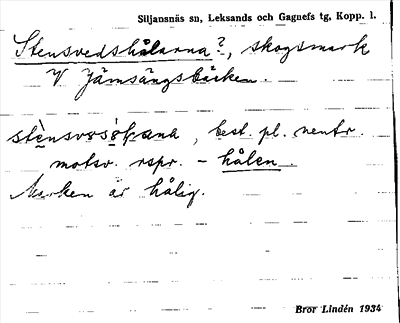 Siljansnäs sn, Leksands och Gagnefs tg, Kopp. l.
Stensvedshålarna?, skogsmark
V Jämsängsbäcken.
best. pl. neutr.
motsv. rspr. - hålen.
Marken är hålig.
Bror Lindén 1934